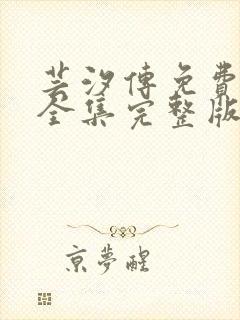 芸汐傳免費
全集完整版
京夢醒